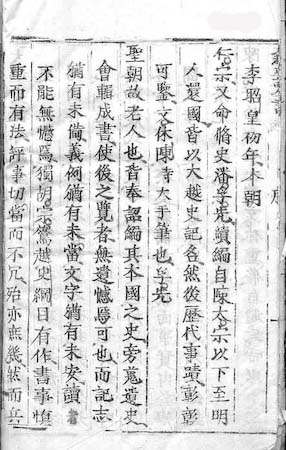 李昭皇初年本朝
仁宗又命修史潘孚先續編自陳太宗以下至明
人還國皆以大越史記名然後歷代事蹟彰彰
可鑒文休陳時大手筆也孚先
聖朝故老人也皆奉詔編其本國之史旁蒐遺史
會輯成書使後之覽者無遺憾焉可也而記志
猶有未備義例猶有未當文字猶有未安讀者
不能無憾焉獨胡宗鷟越史綱目有作書事慎
重而有法評事切當而不冗殆亦庶幾然而兵